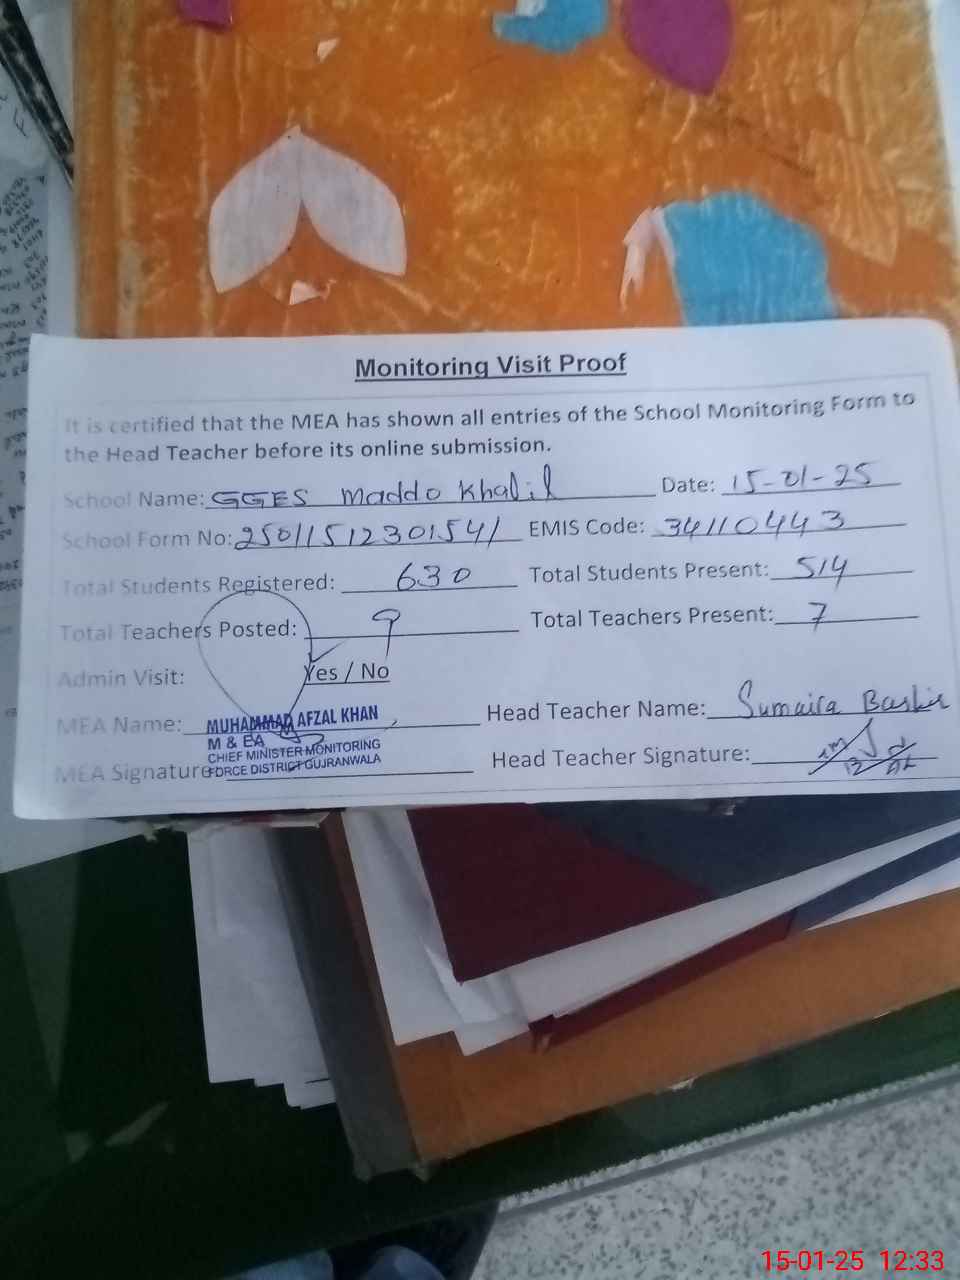 Monitoring Visit Proof
It is certified that the MEA has shown all entries of the School Monitoring Form to
the Head Teacher before its online submission.
School Name: GGES Maddo Khalil Date: 15-01-25
School Form No: 25011512301541 EMIS Code: 34110443
Total Students Registered: 630 Total Students Present: 514
Total Teachers Posted: 9 Total Teachers Present: 7
Admin Visit: Yes / No
MEA Name: MUHAMMAD AFZAL KHAN Head Teacher Name: Sumaira Bashir
M & EA
CHIEF MINISTER MONITORING
MEA Signature FORCE DISTRICT GUJRANWALA Head Teacher Signature:
15-01-25 12:33